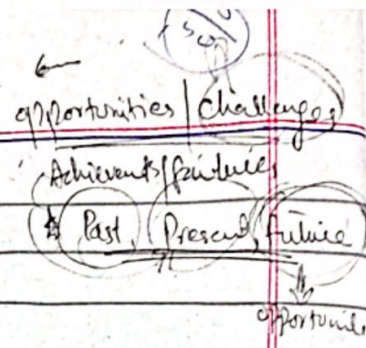 opportunities / Challenges
Achievents / failures
Past, Present, Future
opportunite